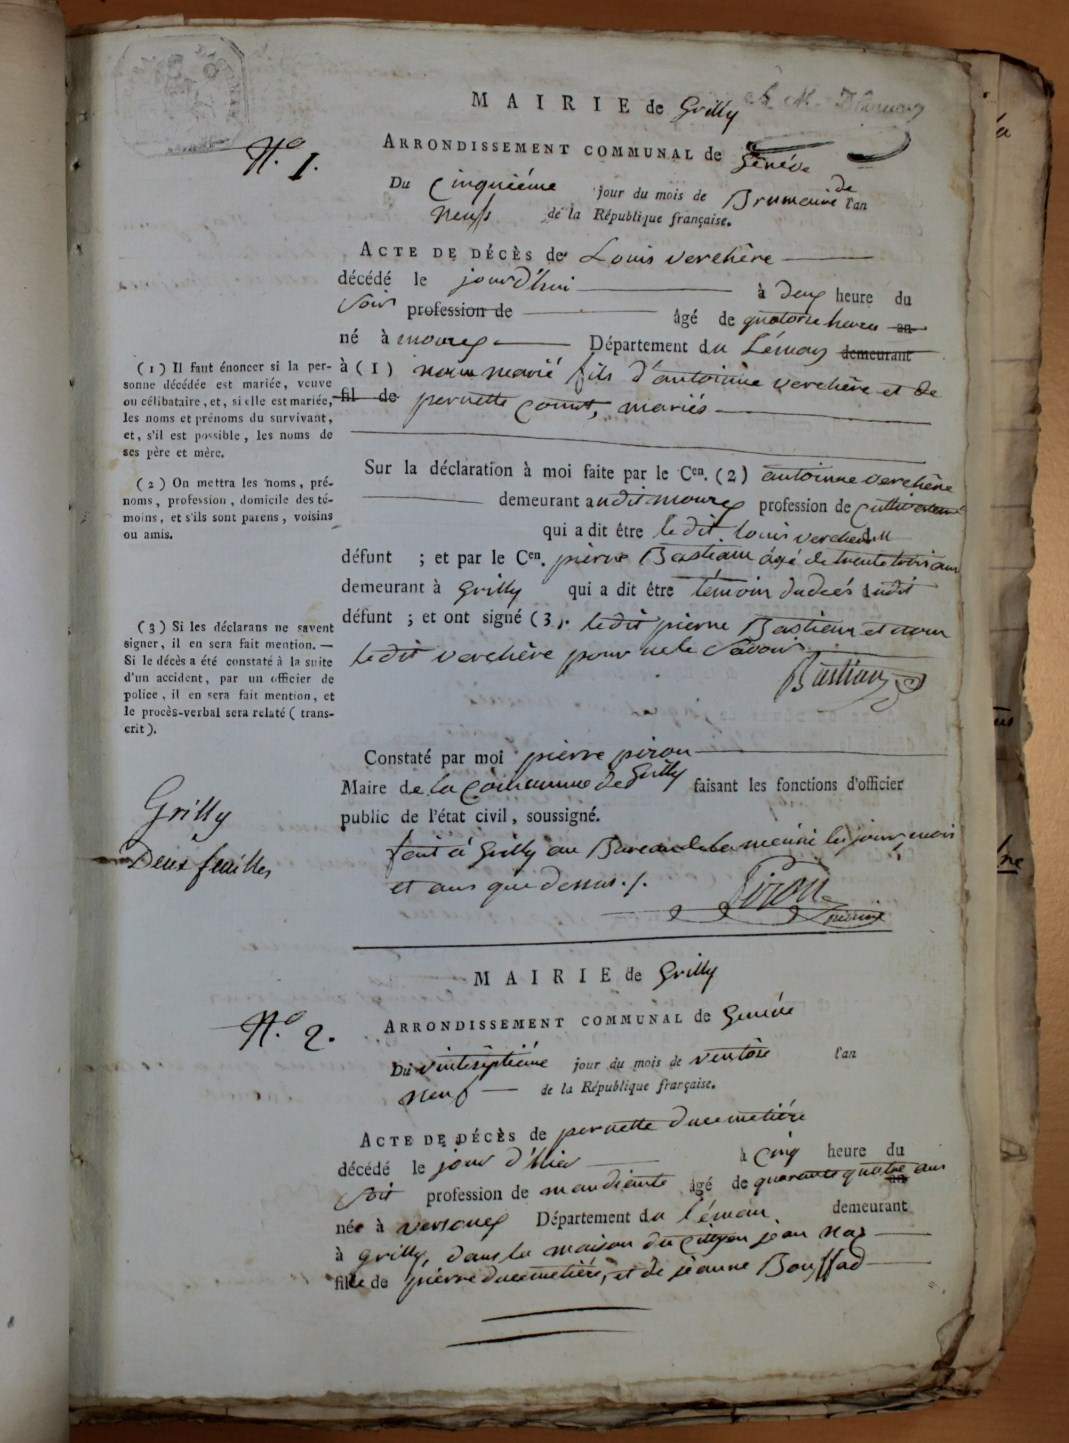 MAIRIE de Grilly
N.o 1.
ARRONDISSEMENT COMMUNAL de Genéve
Du Cinquiéme jour du mois de Brumaire de l'an
neuf de la République française.
ACTE DE DÉCÈS de Louis verchère
décédé le jourd'hui à deux heure du
Soir profession de âgé de quatorse heures an
né à mourex Département du Léman demeurant
à (1) non marié fils d'antoinne verchère et de
fil de pernette Comet, mariés
(1) Il faut énoncer si la per-
sonne décédée est mariée, veuve
ou célibataire, et, si elle est mariée,
les noms et prénoms du survivant,
et, s'il est possible, les noms de
ses père et mère.
Sur la déclaration à moi faite par le Cen. (2) antoinne verchère
demeurant audit mourex profession de Cultivateur
qui a dit être le dit louis verchere
défunt ; et par le Cen. pierre Bastian âgé de trente trois ans
demeurant à Grilly qui a dit être témoin du decés dudit
défunt ; et ont signé (3). ledit pierre Bastian et non
ledit verchère pour ne le Savoir
Bastian
(2) On mettra les noms, pré-
noms, profession, domicile des té-
moins, et s'ils sont parens, voisins
ou amis.
(3) Si les déclarans ne savent
signer, il en sera fait mention. —
Si le décès a été constaté à la suite
d'un accident, par un officier de
police, il en sera fait mention, et
le procès-verbal sera relaté (trans-
crit).
Constaté par moi pierre piron
Maire de la Commune de Grilly faisant les fonctions d'officier
public de l'état civil, soussigné.
fait à Grilly au Bureau de la mairie les jour, mois
et ans que dessus ./.
Piron
maire
Grilly
Deux feuilles
MAIRIE de Grilly
N.o 2.
ARRONDISSEMENT COMMUNAL de Genéve
Du vintseptiéme jour du mois de ventôse l'an
neuf de la République française.
ACTE DE DÉCÈS de pernette ducimetiére
décédé le jour d'hier à Cinq heure du
Soir profession de mandiante âgé de quarante quatre ans
née à versonnex Département du léman demeurant
à Grilly, dans la maison du Cittoyen jean Naz
fille de pierre ducimetiére, et de jeanne Bouffad